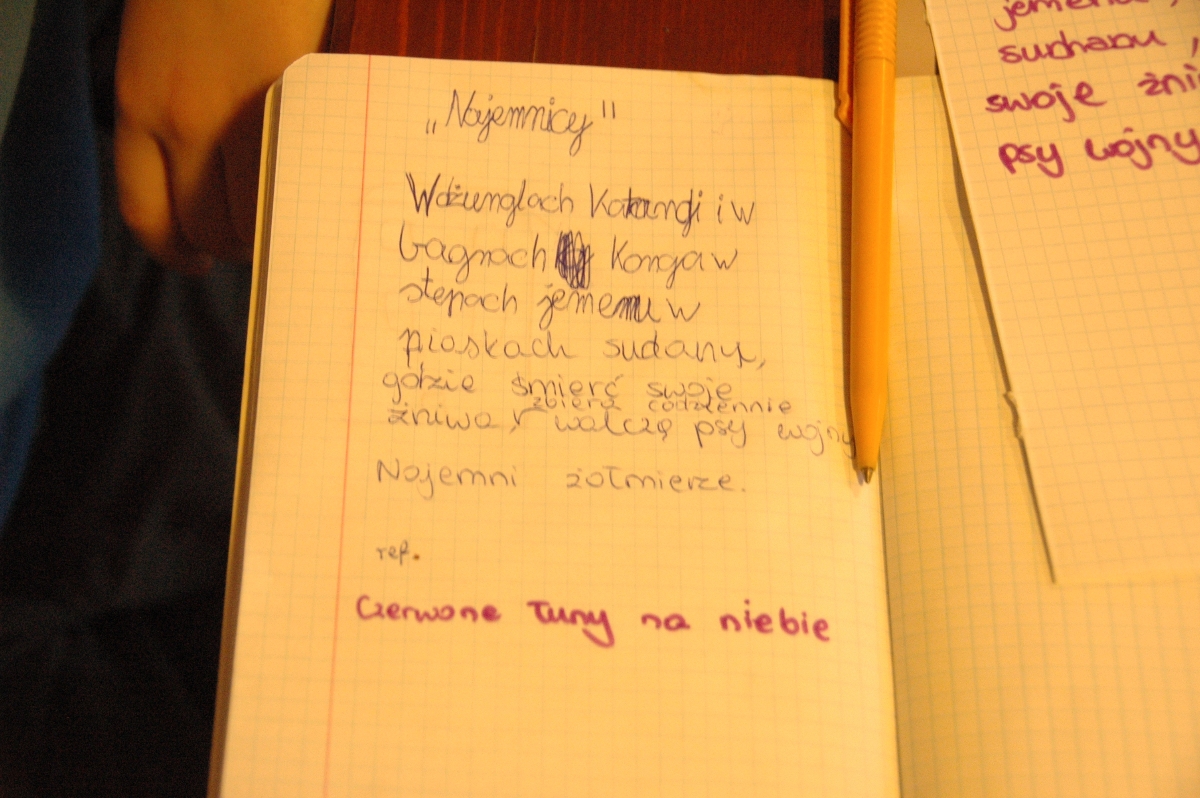 „Najemnicy"
W dżunglach Katangi i w
bagnach Konga w
stepach jemenu w
piaskach sudanu,
gdzie śmierć swoje
zbiera codziennie
żniwa, walczą psy wojny
Najemni żołnierze.
ref.
Czerwone łuny na niebie
jemenu,
sudanu,
swoje żni
psy wojny